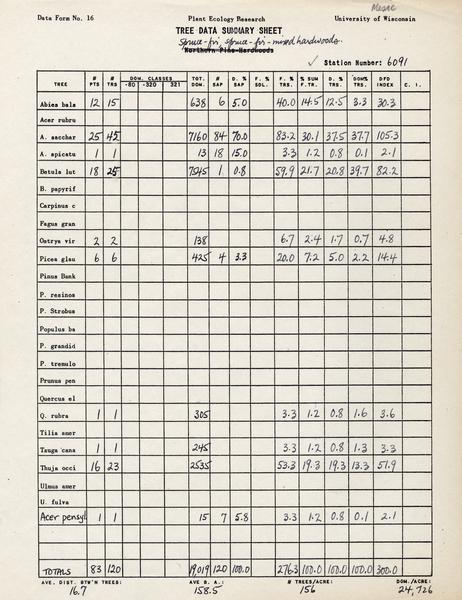 Mesic
Data Form No. 16 Plant Ecology Research University of Wisconsin
TREE DATA SUMMARY SHEET
Spruce-fir, spruce-fir-mixed hardwoods.
Northern Pine-Hardwoods
✓ Station Number: 6091
TREE # PTS # TRS DOM. CLASSES -80 -320 321 TOT. DOM. # SAP D. % SAP F. % SOL. F. % TRS. % SUM F.TR. D. % TRS. DOM% TRS. DFD INDEX C. I.
Abies bals 12 15 638 6 5.0 40.0 14.5 12.5 3.3 30.3
Acer rubru
A. sacchar 25 45 7160 84 70.0 83.2 30.1 37.5 37.7 105.3
A. spicatu 1 1 13 18 15.0 3.3 1.2 0.8 0.1 2.1
Betula lut 18 25 7545 1 0.8 59.9 21.7 20.8 39.7 82.2
B. papyrif
Carpinus c
Fagus gran
Ostrya vir 2 2 138 6.7 2.4 1.7 0.7 4.8
Picea glau 6 6 425 4 3.3 20.0 7.2 5.0 2.2 14.4
Pinus Bank
P. resinos
P. Strobus
Populus ba
P. grandid
P. tremulo
Prunus pen
Quercus el
Q. rubra 1 1 305 3.3 1.2 0.8 1.6 3.6
Tilia amer
Tsuga cana 1 1 245 3.3 1.2 0.8 1.3 3.3
Thuja occi 16 23 2535 53.3 19.3 19.3 13.3 51.9
Ulmus amer
U. fulva
Acer pensyl 1 1 15 7 5.8 3.3 1.2 0.8 0.1 2.1
TOTALS 83 120 19019 120 100.0 276.3 100.0 100.0 100.0 300.0
AVE. DIST. BTW'N TREES: AVE B. A.: # TREES/ACRE: DOM./ACRE:
16.7 158.5 156 24,726